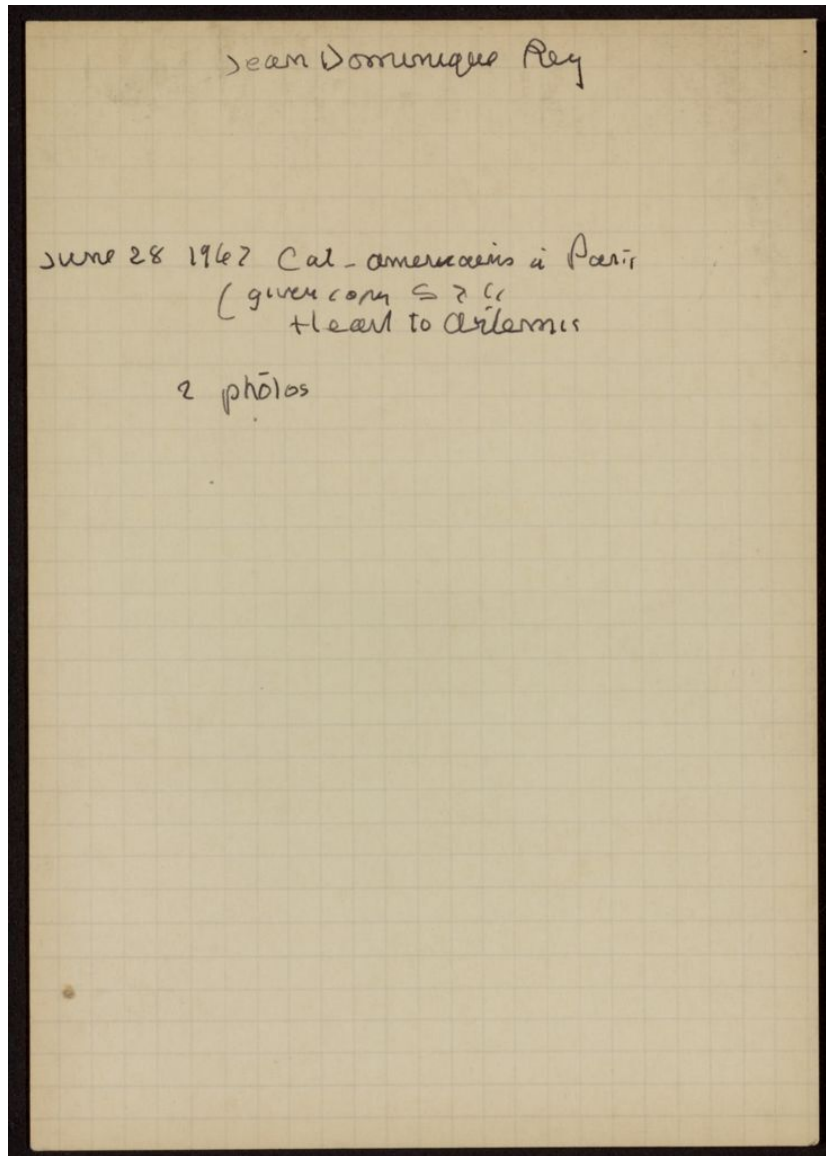 Jean Dominique Rey
June 28 1962 Cat - americains à Paris
(given copy S & Co
Heart to Artemis
2 photos